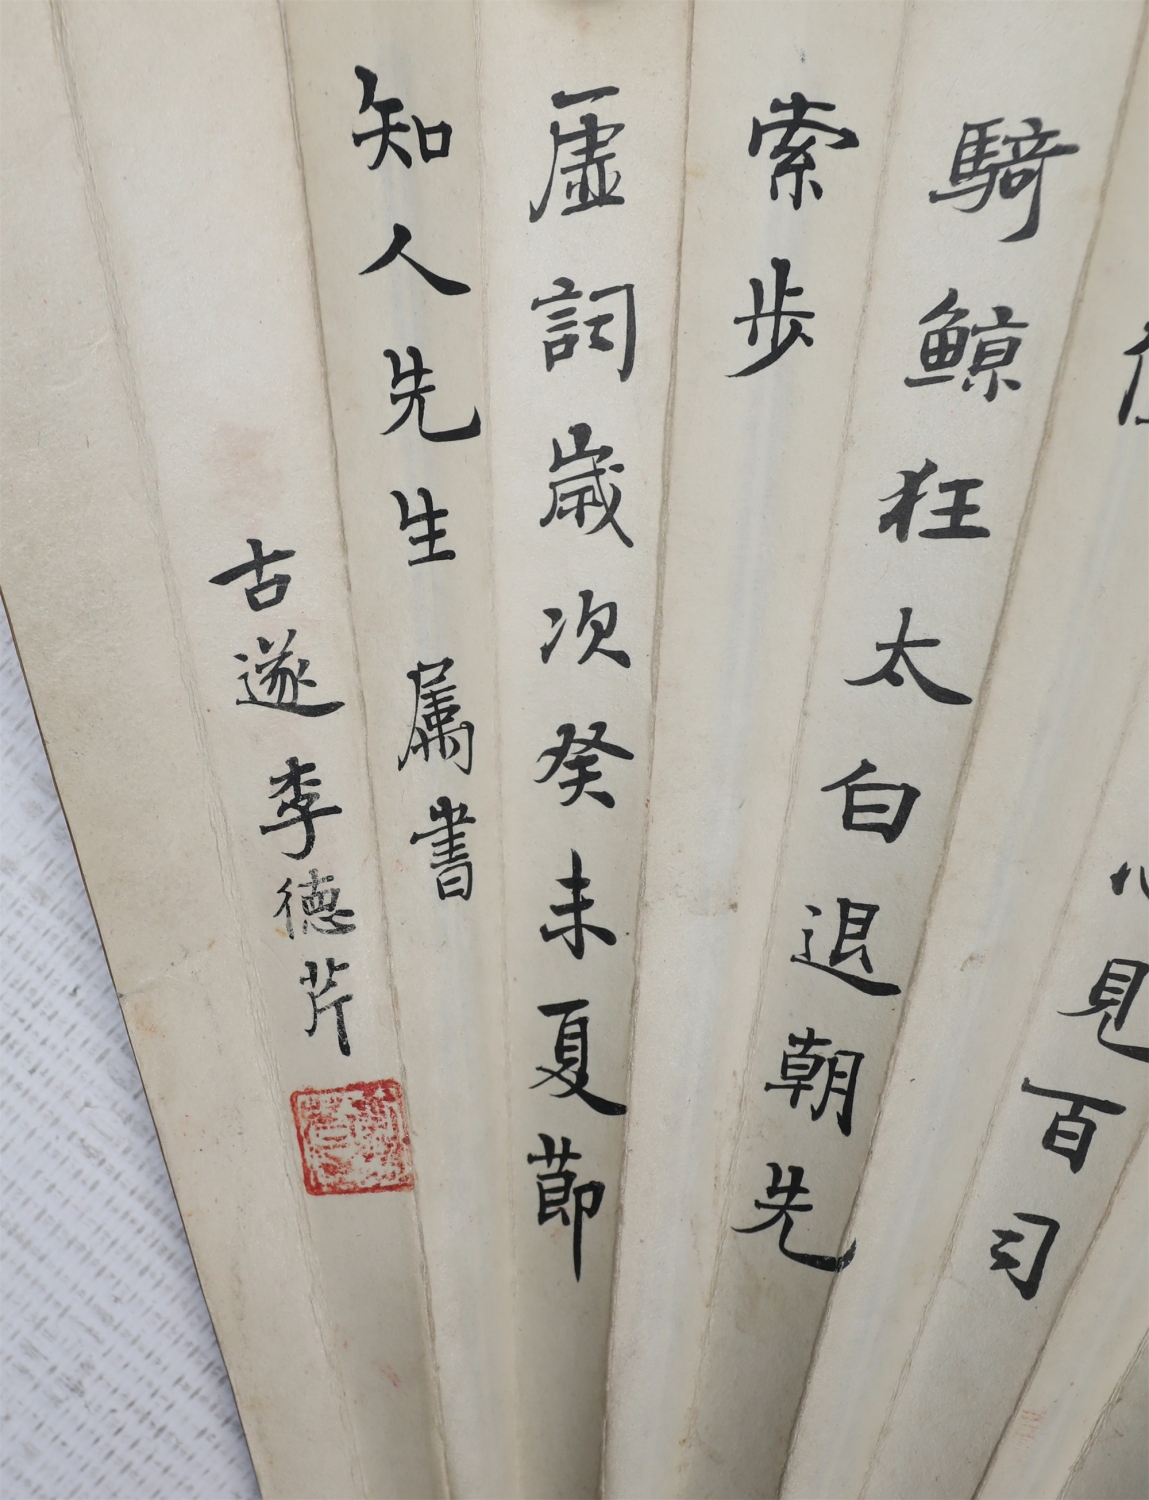 心見百司
騎鯨狂太白退朝先
索步
虛詞歲次癸未夏節
知人先生属書
古遂李德芹